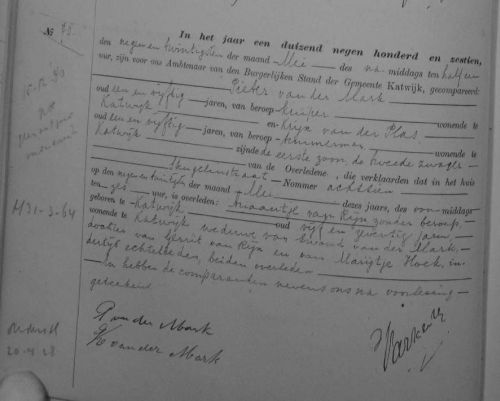 № 75.
In het jaar een duizend negen honderd en zestien,
den negen en twintigsten der maand Mei des na middags ten half een
uur, zijn voor ons Ambtenaar van den Burgerlijken Stand der Gemeente Katwijk, gecompareerd:
Pieter van der Mark
oud een en vijftig jaren, van beroep kuiper wonende te
Katwijk en Krijn van der Plas
oud een en vijftig jaren, van beroep timmerman wonende te
Katwijk zijnde de eerste zoon, de tweede
van de Overledene, die verklaarden dat in het huis
straat Nommer achttien
op den negen en twintigsten der maand Mei dezes jaars, des voor middags
ten zes uur, is overleden: van Rijn zonder beroep
oud vijf en jaren
geboren te Katwijk
wonende te Katwijk weduwe van van der Mark,
dochter van Gerrit van Rijn en van Marijtje Hoek, in
dertijd echtelieden, beiden overleden
En hebben de comparanten nevens ons na voorlezing
geteekend
P van der Mark
K van der Mark
H31-3-64
20-4 28